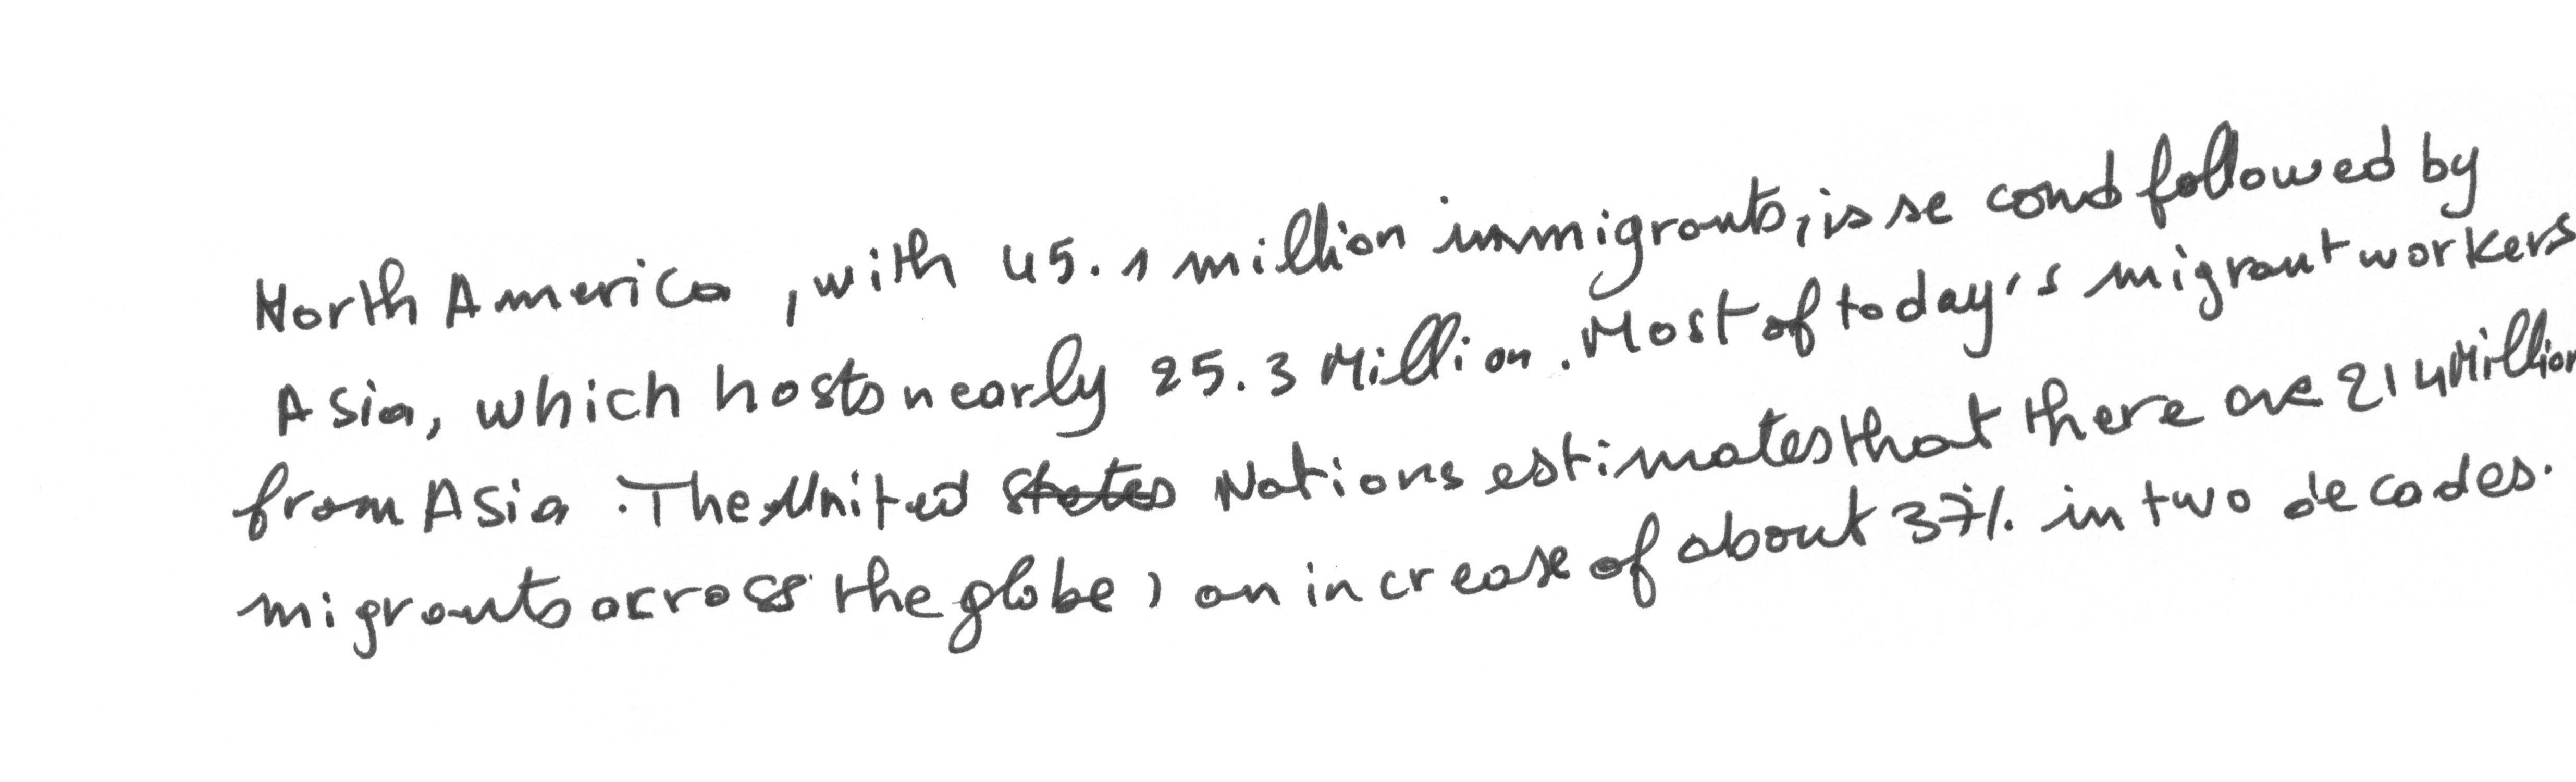 North America, with 45.1 million immigrants, is second followed by
Asia, which hosts nearly 25.3 Million. Most of today's migrant workers
from Asia. The United States Nations estimates that there are 214 Million
migrants across the globe, an increase of about 37% in two decades.